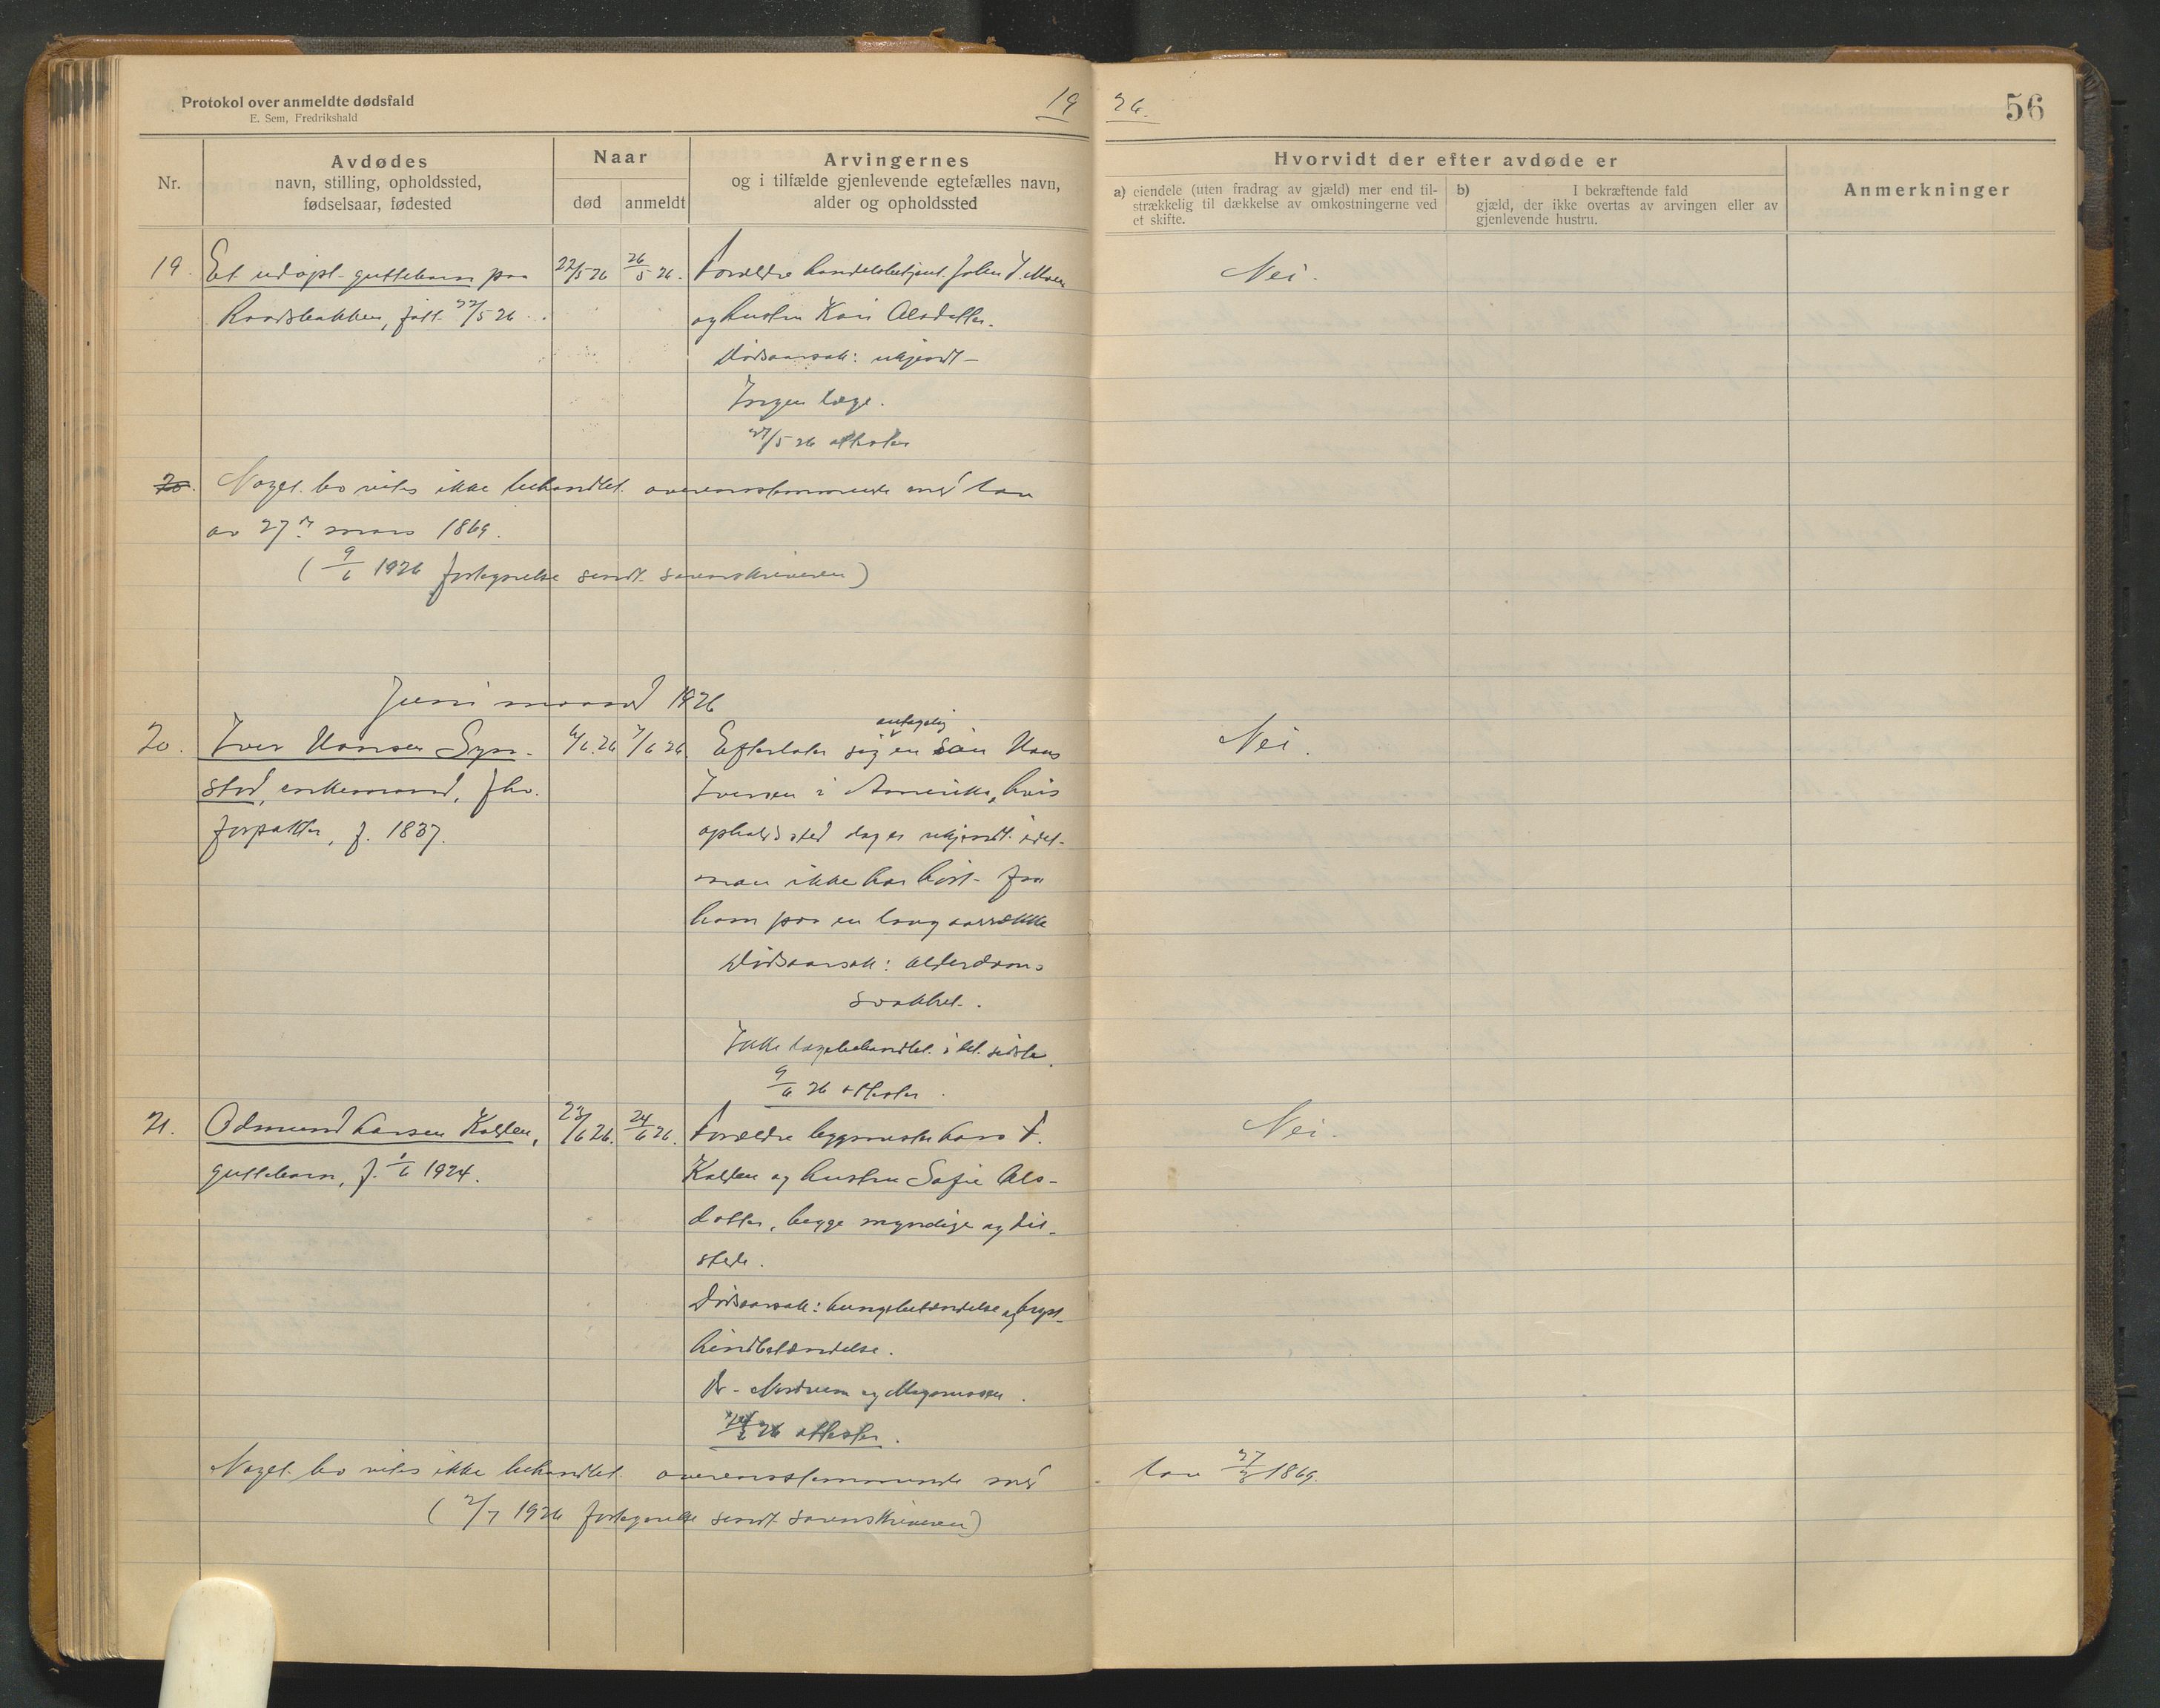 Protokol over anmeldte dødsfald
E. Sem, Fredrikshald
19 26.
56
Nr.
Avdødes
navn, stilling, opholdssted,
fødselsaar, fødested
Naar
død
anmeldt
Arvingernes
og i tilfælde gjenlevende egtefælles navn,
alder og opholdssted
Hvorvidt der efter avdøde er
a) eiendele (uten fradrag av gjæld) mer end til-
strækkelig til dækkelse av omkostningerne ved
et skifte.
b) I bekræftende fald
gjæld, der ikke overtas av arvingen eller av
gjenlevende hustru.
Anmerkninger
19. Et udøpt guttebarn paa 22/5 26 26/5 26. Forældre handelsbetjent John J. Moen Nei.
født 22/5 26. og hustru Kari Olsdatter.
Dødsaarsak: ukjendt
Ingen læge.
27/5 26 attester
20. Noget bo vites ikke behandlet overensstemmende med lov
av 27de mars 1869.
(9/6 1926 fortegnelse sendt sorenskriveren)
Juni maaned 1926
20. Iver Hansen Syn- 6/6.26 7/6 26. Efterlater sig antagelig en søn Hans Nei.
stad, enkemand, fhv. Iversen i Amerika, hvis
forpakter, f. 1837. opholdssted dog er ukjendt idet
man ikke har hørt fra
ham paa en lang aarrække
Dødsaarsak: Alderdoms
svakhet.
Ikke lægebehandlet i det sidste.
9/6 26 attester.
21. Odmund Larsen Kolden, 23/6 26. 24/6 26. Forældre byggmester Lars T. Nei.
guttebarn, f. 1/6 1924. Kolden og hustru Sofie Ols-
datter, begge myndige og til-
stede.
Dødsaarsak: Lungebetændelse og bryst-
hindbetændelse.
Dr. og Magnussen.
26 attester.
Noget bo vites ikke behandlet overensstemmende med lov 27/3 1869.
(2/7 1926 fortegnelse sendt sorenskriveren)